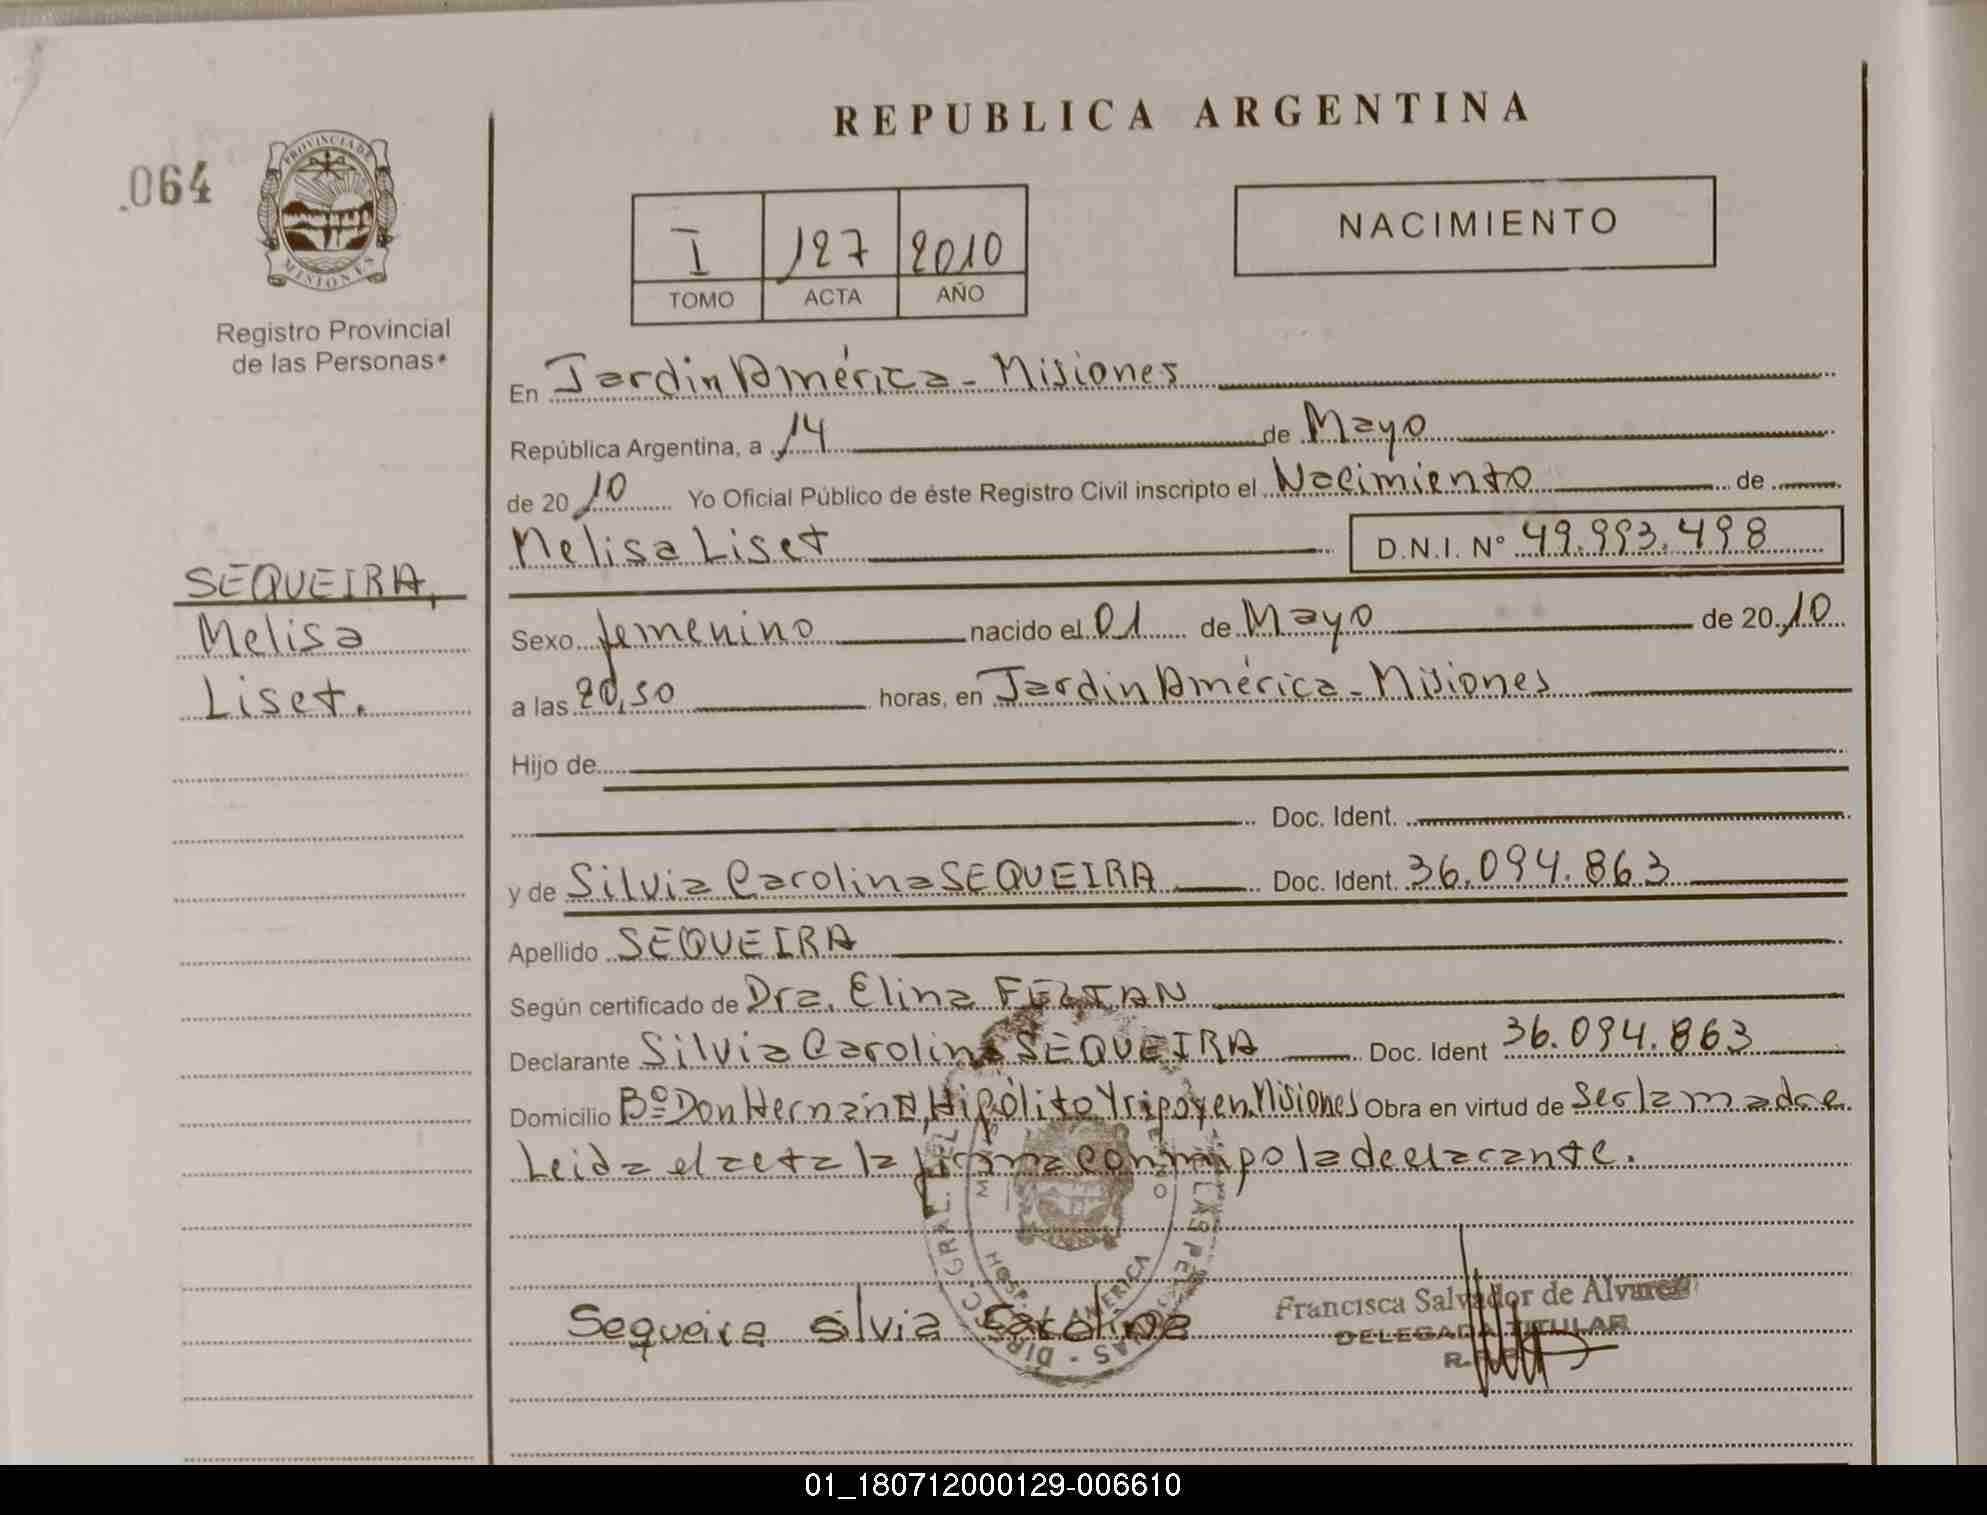 REPUBLICA ARGENTINA
.064
PROVINCIA DE
MISIONES
Registro Provincial
de las Personas
I 127 2010
TOMO ACTA AÑO
NACIMIENTO
SEQUEIRA,
Melisa
Liset.
En Jardin América - Misiones
República Argentina, a 14 de Mayo
de 20 10 Yo Oficial Público de éste Registro Civil inscripto el Nacimiento de
Melisa Liset D.N.I. N° 49.993.498
Sexo femenino nacido el 01 de Mayo de 20 10
a las 20,50 horas, en Jardin América - Misiones
Hijo de
Doc. Ident.
y de Silvia Carolina SEQUEIRA Doc. Ident. 36.094.863
Apellido SEQUEIRA
Según certificado de Dra. Elina
Declarante Silvia Carolina SEQUEIRA Doc. Ident 36.094.863
Domicilio Bº Don Hernán Hipólito Yrigoyen Misiones Obra en virtud de ser la madre
Leida el acta la firma conmigo la declarante.
Sequeira silvia Carolina
Francisca Salvador de Alvarez
DELEGADA TITULAR
01_180712000129-006610